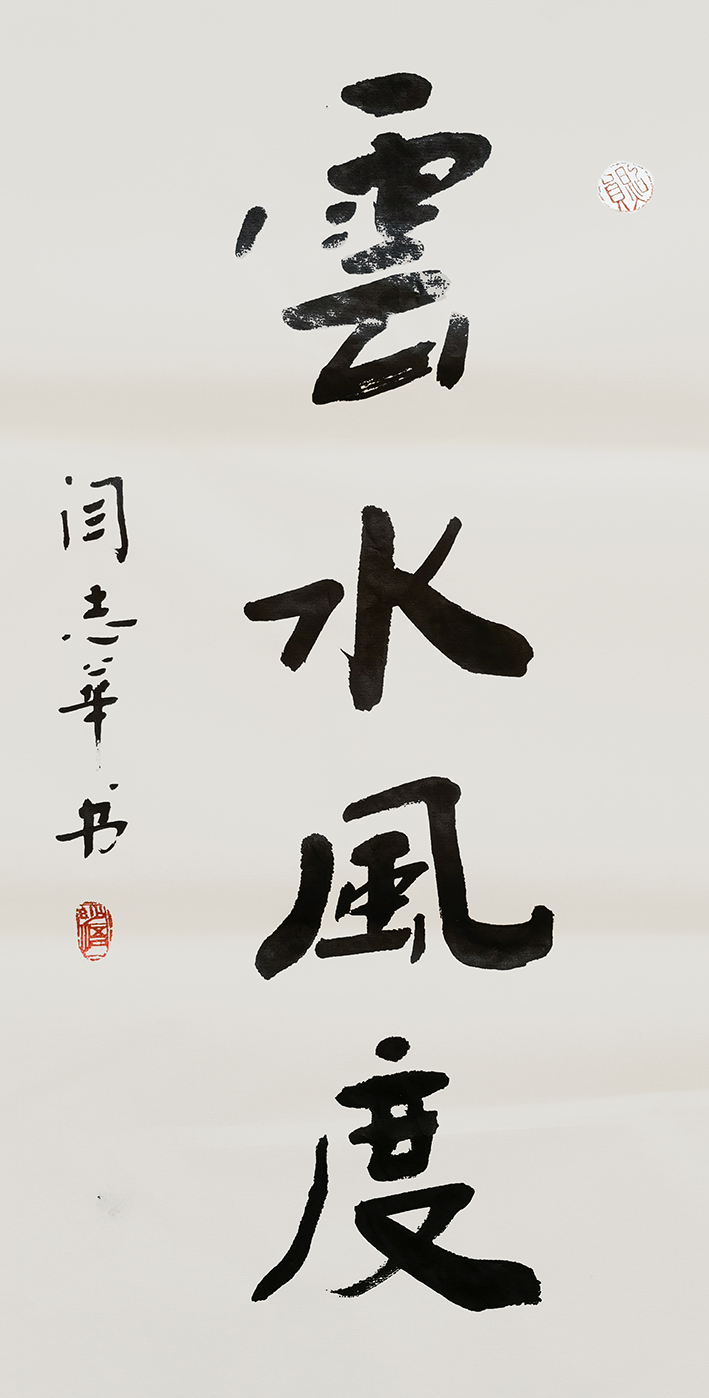 雲水風度
闫志華书